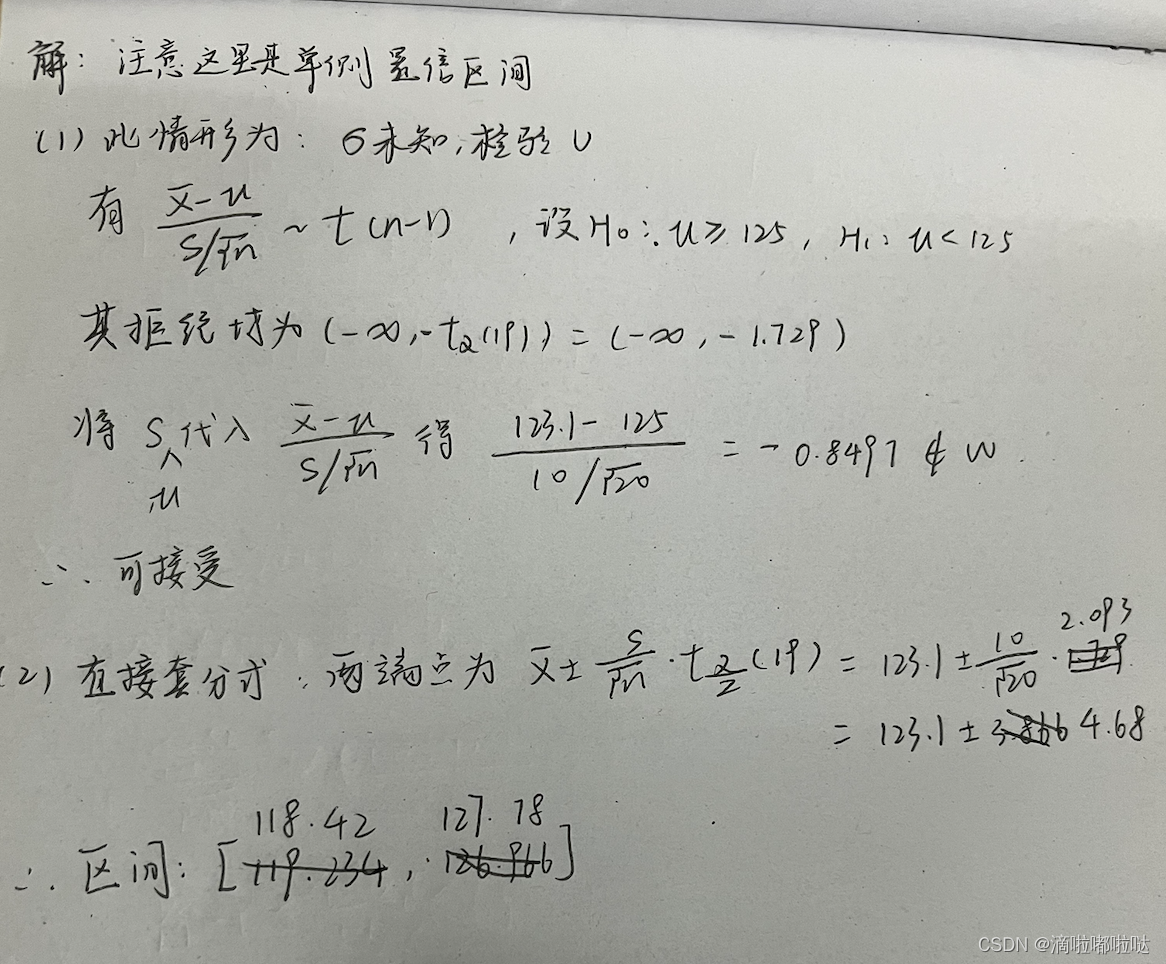 解：注意这里是单侧置信区间
(1) 此情形为：σ未知，检验 u
有 (x̄-u)/(S/√n) ~ t(n-1)，设H₀：u≥125，H₁：u<125
其拒绝域为(-∞,-tα(19))=(-∞,-1.729)
将 S, u 代入 (x̄-u)/(S/√n) 得 (123.1-125)/(10/√20) = -0.8497 ∉ W.
∴ 可接受
(2) 直接套公式，两端点为 x̄ ± S/√n · tα/2(19) = 123.1 ± 10/√20 · 2.093
= 123.1 ± 4.68
∴ 区间：[118.42, 127.78]
CSDN @滴啦嘟啦哒